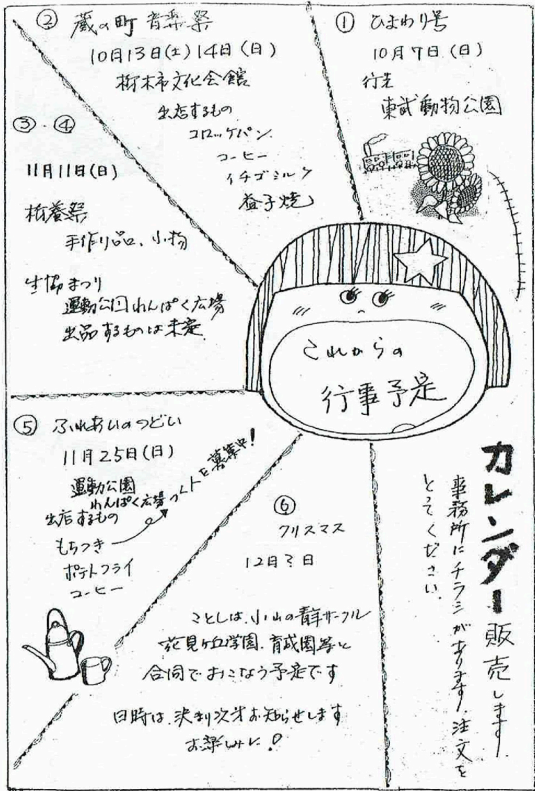 これからの
行事予定
① ひまわり号
10月7日(日)
行先
東武動物公園
② 蔵の町 音楽祭
10月13日(土)14日(日)
栃木市文化会館
出店するもの
コロッケパン
コーヒー
イチゴミルク
益子焼
③・④
11月11日(日)
栃養祭
手作り品、小物
生協まつり
運動公園わんぱく広場
出品するものは未定
⑤ ふれあいのつどい
11月25日(日)
運動公園
わんぱく広場
出店するもの
もちつき
つく人を募集中!
ポテトフライ
コーヒー
⑥
クリスマス
12月?日
ことしは、小山の青年サークル
花見ヶ丘学園、育成園等と
合同でおこなう予定です
日時は、決まり次才お知らせします
お楽しみに!
カレンダー販売します。
事務所にチラシがあります。注文を
とってください。